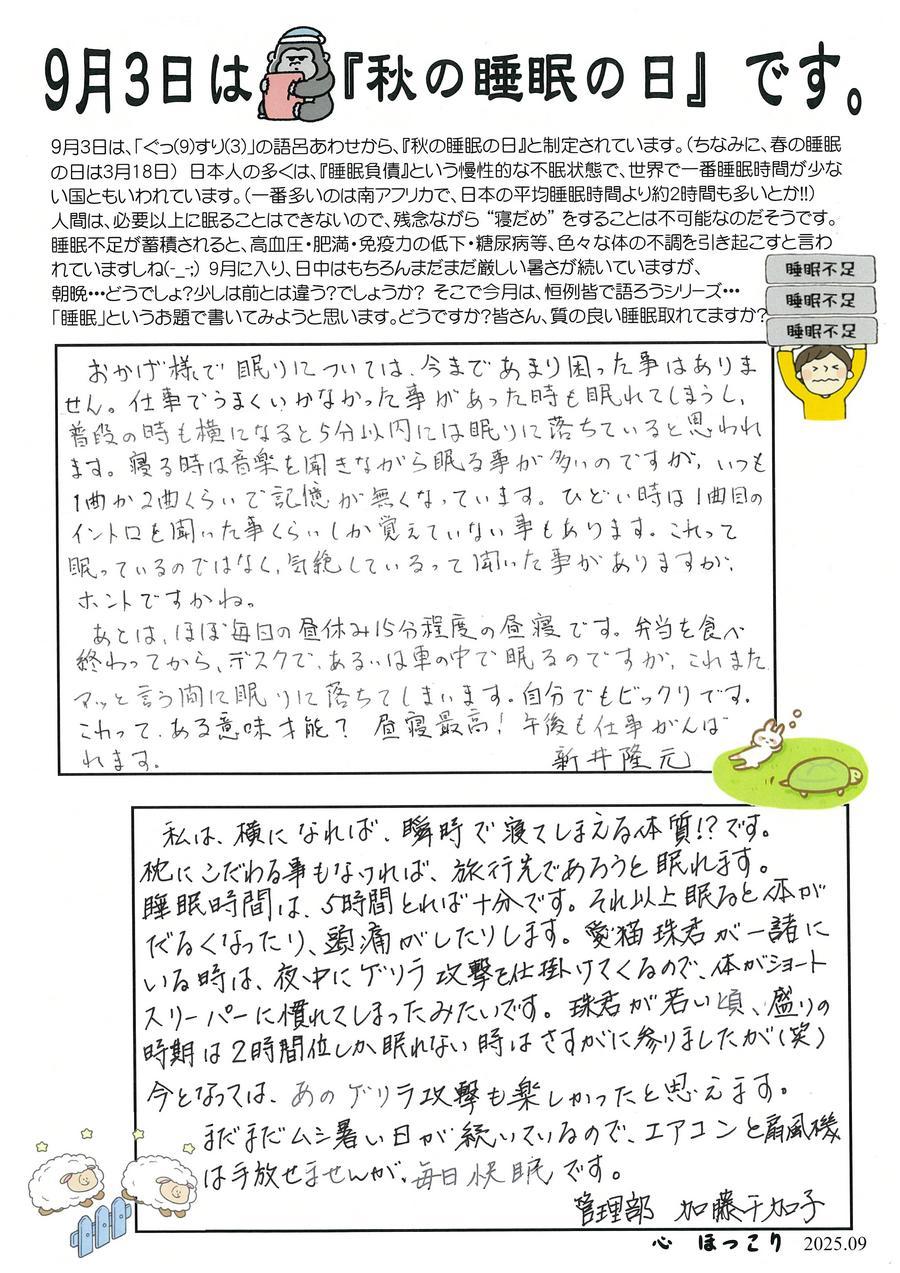 9月3日は『秋の睡眠の日』です。
9月3日は、「ぐっ(9)すり(3)」の語呂あわせから、『秋の睡眠の日』と制定されています。（ちなみに、春の睡眠
の日は3月18日） 日本人の多くは、『睡眠負債』という慢性的な不眠状態で、世界で一番睡眠時間が少な
い国ともいわれています。（一番多いのは南アフリカで、日本の平均睡眠時間より約2時間も多いとか!!）
人間は、必要以上に眠ることはできないので、残念ながら “寝だめ” をすることは不可能なのだそうです。
睡眠不足が蓄積されると、高血圧・肥満・免疫力の低下・糖尿病等、色々な体の不調を引き起こすと言わ
れていますしね(-_-;) 9月に入り、日中はもちろんまだまだ厳しい暑さが続いていますが、
朝晩・・・どうでしょ？少しは前とは違う？でしょうか？ そこで今月は、恒例皆で語ろうシリーズ・・・
「睡眠」というお題で書いてみようと思います。どうですか？皆さん、質の良い睡眠取れてますか？
睡眠不足
睡眠不足
睡眠不足
おかげ様で眠りについては、今まであまり困った事はありま
せん。仕事でうまくいかなかった事があった時も眠れてしまうし、
普段の時も横になると5分以内には眠りに落ちていると思われ
ます。寝る時は音楽を聞きながら眠る事が多いのですが、いつも
1曲か2曲くらいで記憶が無くなっています。ひどい時は1曲目の
イントロを聞いた事くらいしか覚えていない事もあります。これって
眠っているのではなく、気絶しているって聞いた事がありますが、
ホントですかね。
あとは、ほぼ毎日の昼休み15分程度の昼寝です。弁当を食べ
終わってから、デスクで、あるいは車の中で眠るのですが、これまた
アッと言う間に眠りに落ちてしまいます。自分でもビックリです。
これって、ある意味才能？ 昼寝最高！ 午後も仕事がんば
れます。 新井隆元
私は、横になれば、瞬時で寝てしまえる体質!?です。
枕にこだわる事もなければ、旅行先であろうと眠れます。
睡眠時間は、5時間とれば十分です。それ以上眠ると体が
だるくなったり、頭痛がしたりします。愛猫珠君が一諸に
いる時は、夜中にゲリラ攻撃を仕掛けてくるので、体がショート
スリーパーに慣れてしまったみたいです。珠君が若い頃、盛りの
時期は2時間位しか眠れない時はさすがに参りましたが（笑）
今となっては、あのゲリラ攻撃も楽しかったと思えます。
まだまだムシ暑い日が続いているので、エアコンと扇風機
は手放せませんが、毎日快眠です。
管理部 加藤千加子
心 ほっこり 2025.09